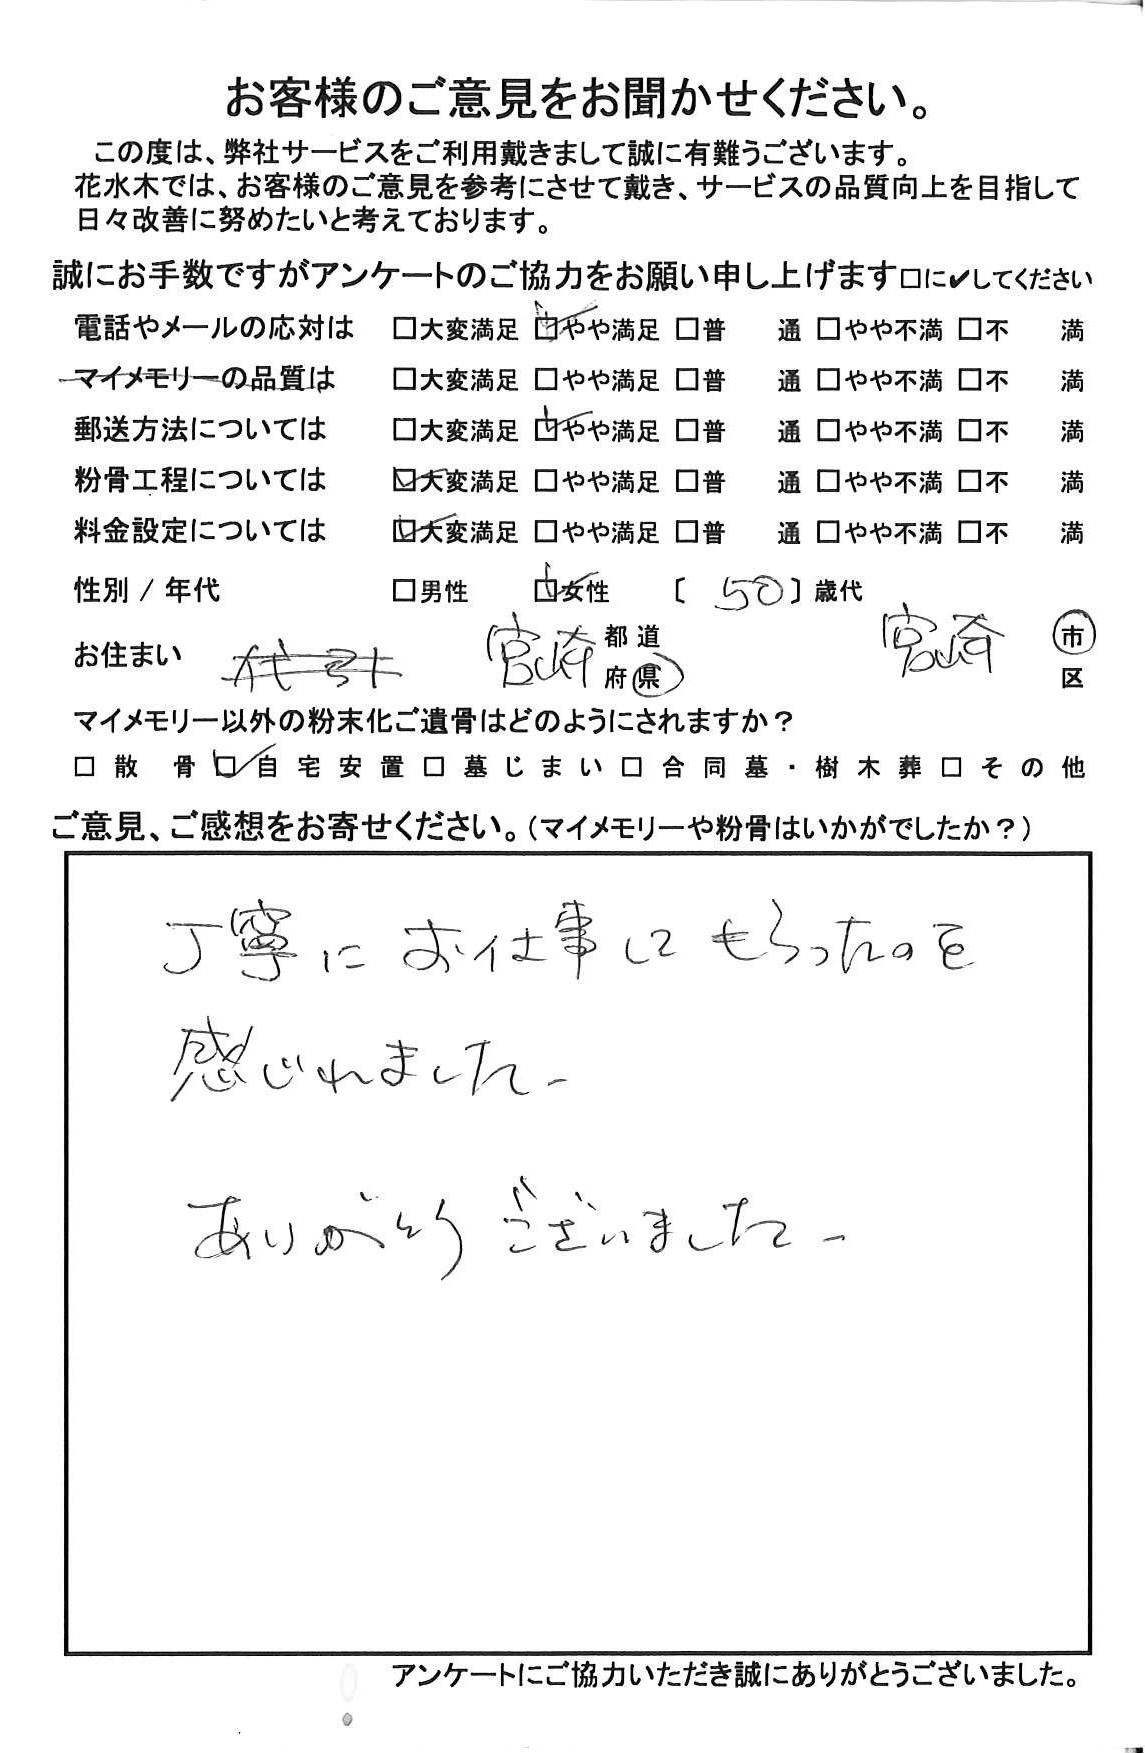 お客様のご意見をお聞かせください。
この度は、弊社サービスをご利用戴きまして誠に有難うございます。
花水木では、お客様のご意見を参考にさせて戴き、サービスの品質向上を目指して
日々改善に努めたいと考えております。
誠にお手数ですがアンケートのご協力をお願い申し上げます□に✔してください
電話やメールの応対は □大変満足 ☑やや満足 □普 通 □やや不満 □不 満
マイメモリーの品質は □大変満足 □やや満足 □普 通 □やや不満 □不 満
郵送方法については □大変満足 ☑やや満足 □普 通 □やや不満 □不 満
粉骨工程については ☑大変満足 □やや満足 □普 通 □やや不満 □不 満
料金設定については ☑大変満足 □やや満足 □普 通 □やや不満 □不 満
性別 / 年代 □男性 ☑女性 〔 50 〕歳代
お住まい 代引 宮崎 都道府県 宮崎 市区
マイメモリー以外の粉末化ご遺骨はどのようにされますか？
□散 骨 ☑自宅安置 □墓じまい □合同墓・樹木葬 □その他
ご意見、ご感想をお寄せください。（マイメモリーや粉骨はいかがでしたか？）
丁寧にお仕事してもらったのを
感じれました。
ありがとうございました。
アンケートにご協力いただき誠にありがとうございました。